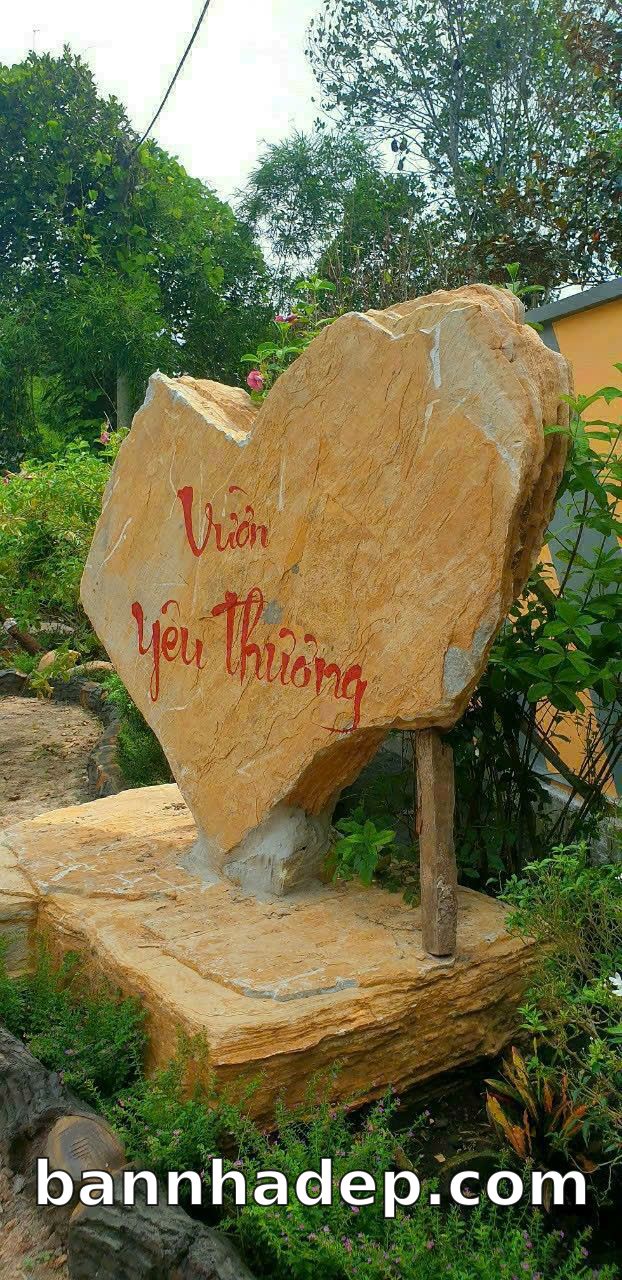 Vườn
yêu Thương
bannhadep.com